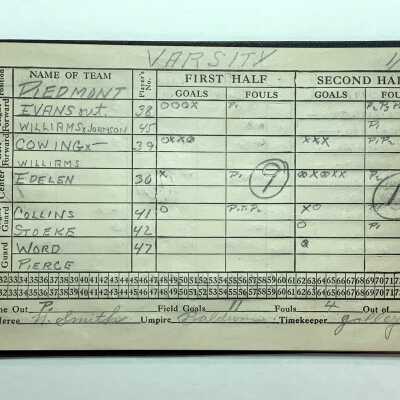 VARSITY
NAME OF TEAM Player's No. FIRST HALF SECOND HALF
PIEDMONT GOALS FOULS GOALS FOULS
Forward EVANS out. 38 OOOX P₁
WILLIAMS x JOHNSON 45 P₁
Forward COWING x 39 XXX P₁P₂
WILLIAMS
Center EDELEN 36 X P₁ 9
Guard COLLINS 41 O P₁T₁P₂ XO
STOEKE 42 O P₁
Guard WORD 47
PIERCE
32 33 34 35 36 37 38 39 40 41 42 43 44 45 46 47 48 49 50 51 52 53 54 55 56 57 58 59 60 61 62 63 64 65 66 67 68 69 70 71
32 33 34 35 36 37 38 39 40 41 42 43 44 45 46 47 48 49 50 51 52 53 54 55 56 57 58 59 60 61 62 63 64 65 66 67 68 69 70 71
me Out P. Field Goals 11 Fouls 4 Out of
feree Smith Umpire Timekeeper